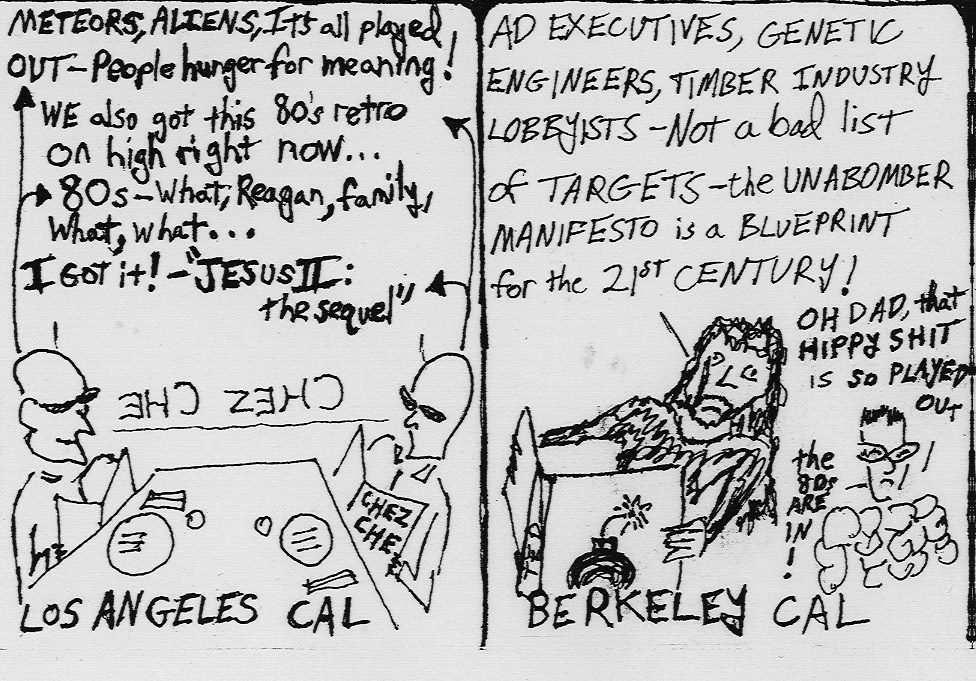 METEORS, ALIENS, It's all played
OUT - People hunger for meaning!
WE also got this 80's retro
on high right now...
80s - What, Reagan, family,
What, what...
I GOT it! - "JESUS II:
the sequel"
CHEZ CHE
CHEZ
CHE
LOS ANGELES CAL
AD EXECUTIVES, GENETIC
ENGINEERS, TIMBER INDUSTRY
LOBBYISTS - Not a bad list
of TARGETS - the UNABOMBER
MANIFESTO is a BLUEPRINT
for the 21ST CENTURY!
OH DAD, that
HIPPY SHIT
is so PLAYED
OUT
the
80s
ARE
IN!
TED
BERKELEY CAL